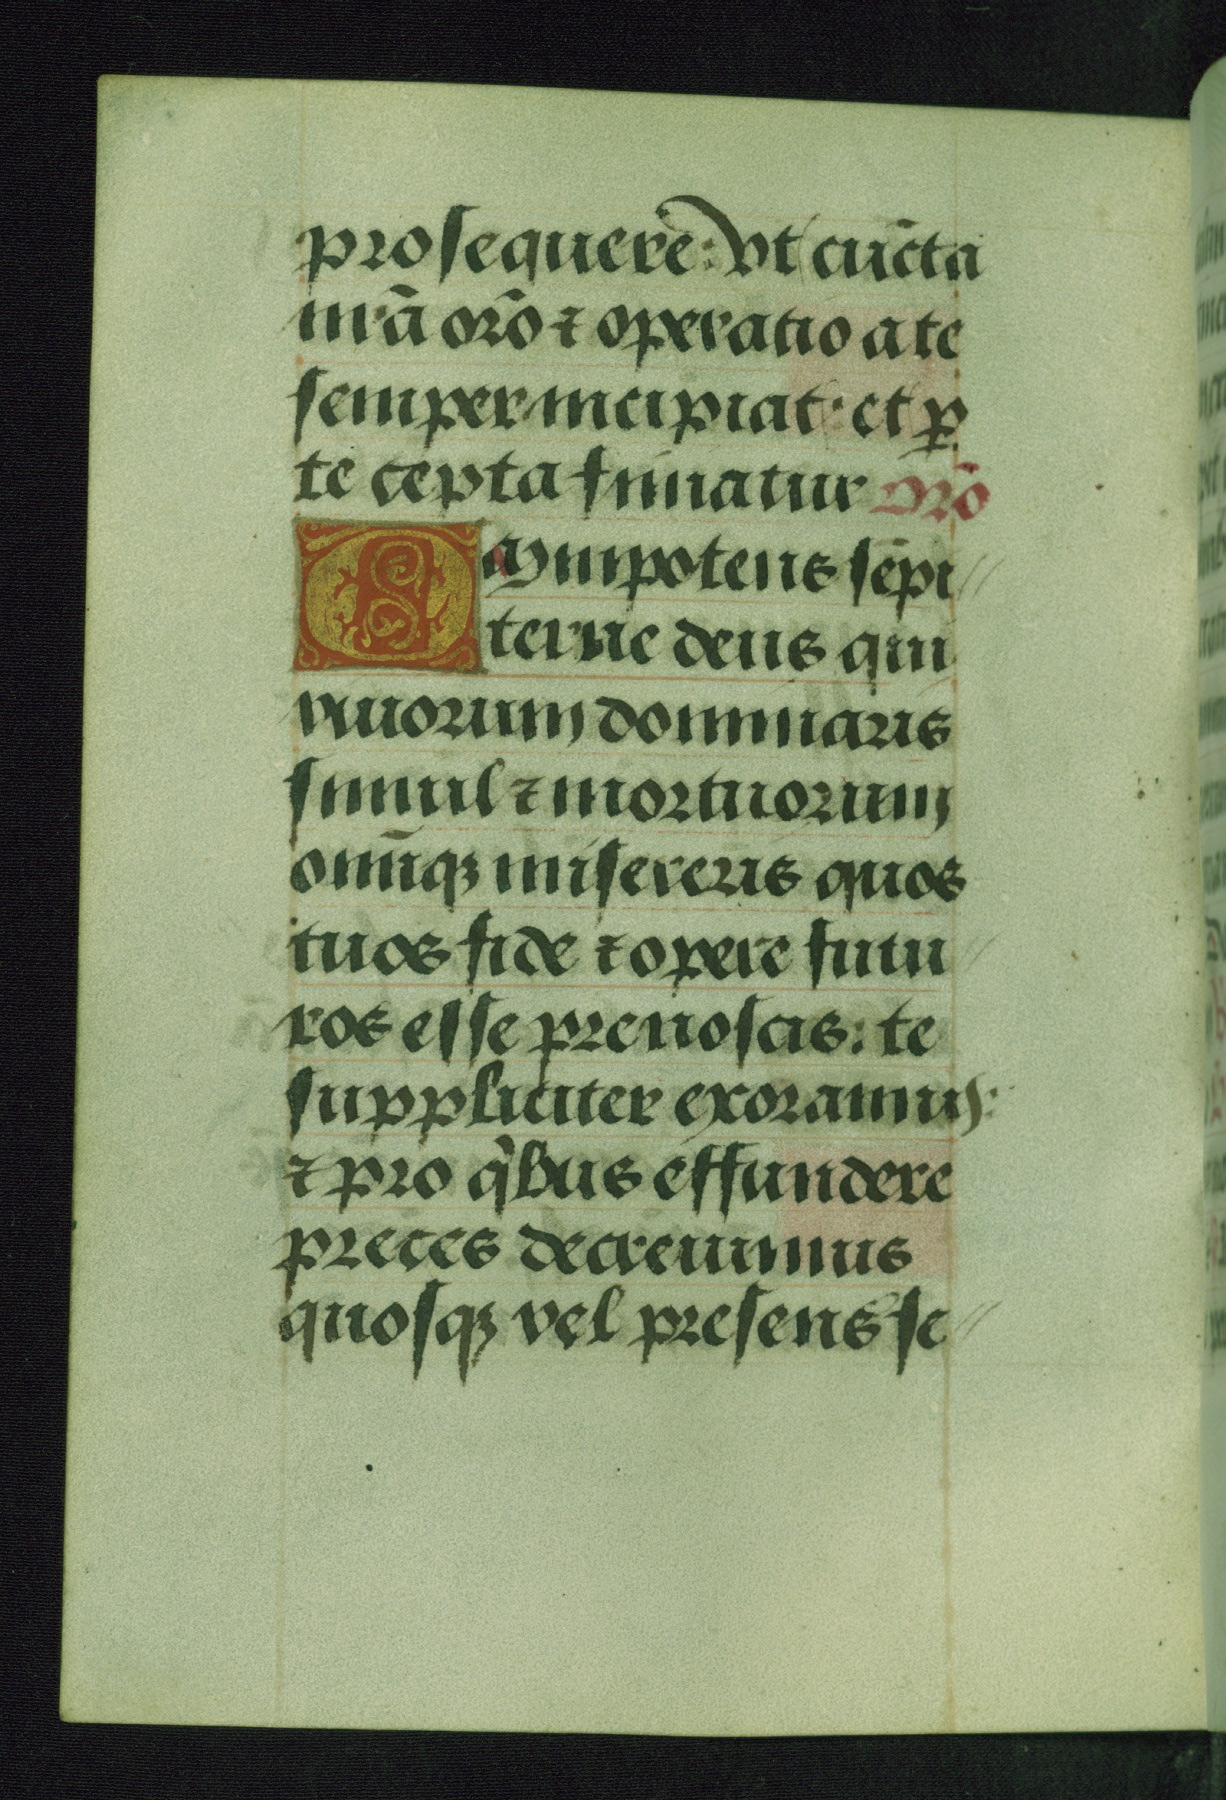 prosequere: vt cu̅cta
nr̅a or̅o ⁊ operatio a te
semper incipiat: et ꝑ
te cepta finiatur Or̅o
Omnipotens se̅pi
terne deus qui
viuorum dominaris
simul ⁊ mortuorum
omni̅qꝫ misereris quos
tuos fide ⁊ opere futu
ros esse prenoscis: te
suppliciter exoramus:
⁊ pro qͥbus effundere
preces decreuimus
quosqꝫ vel presens se